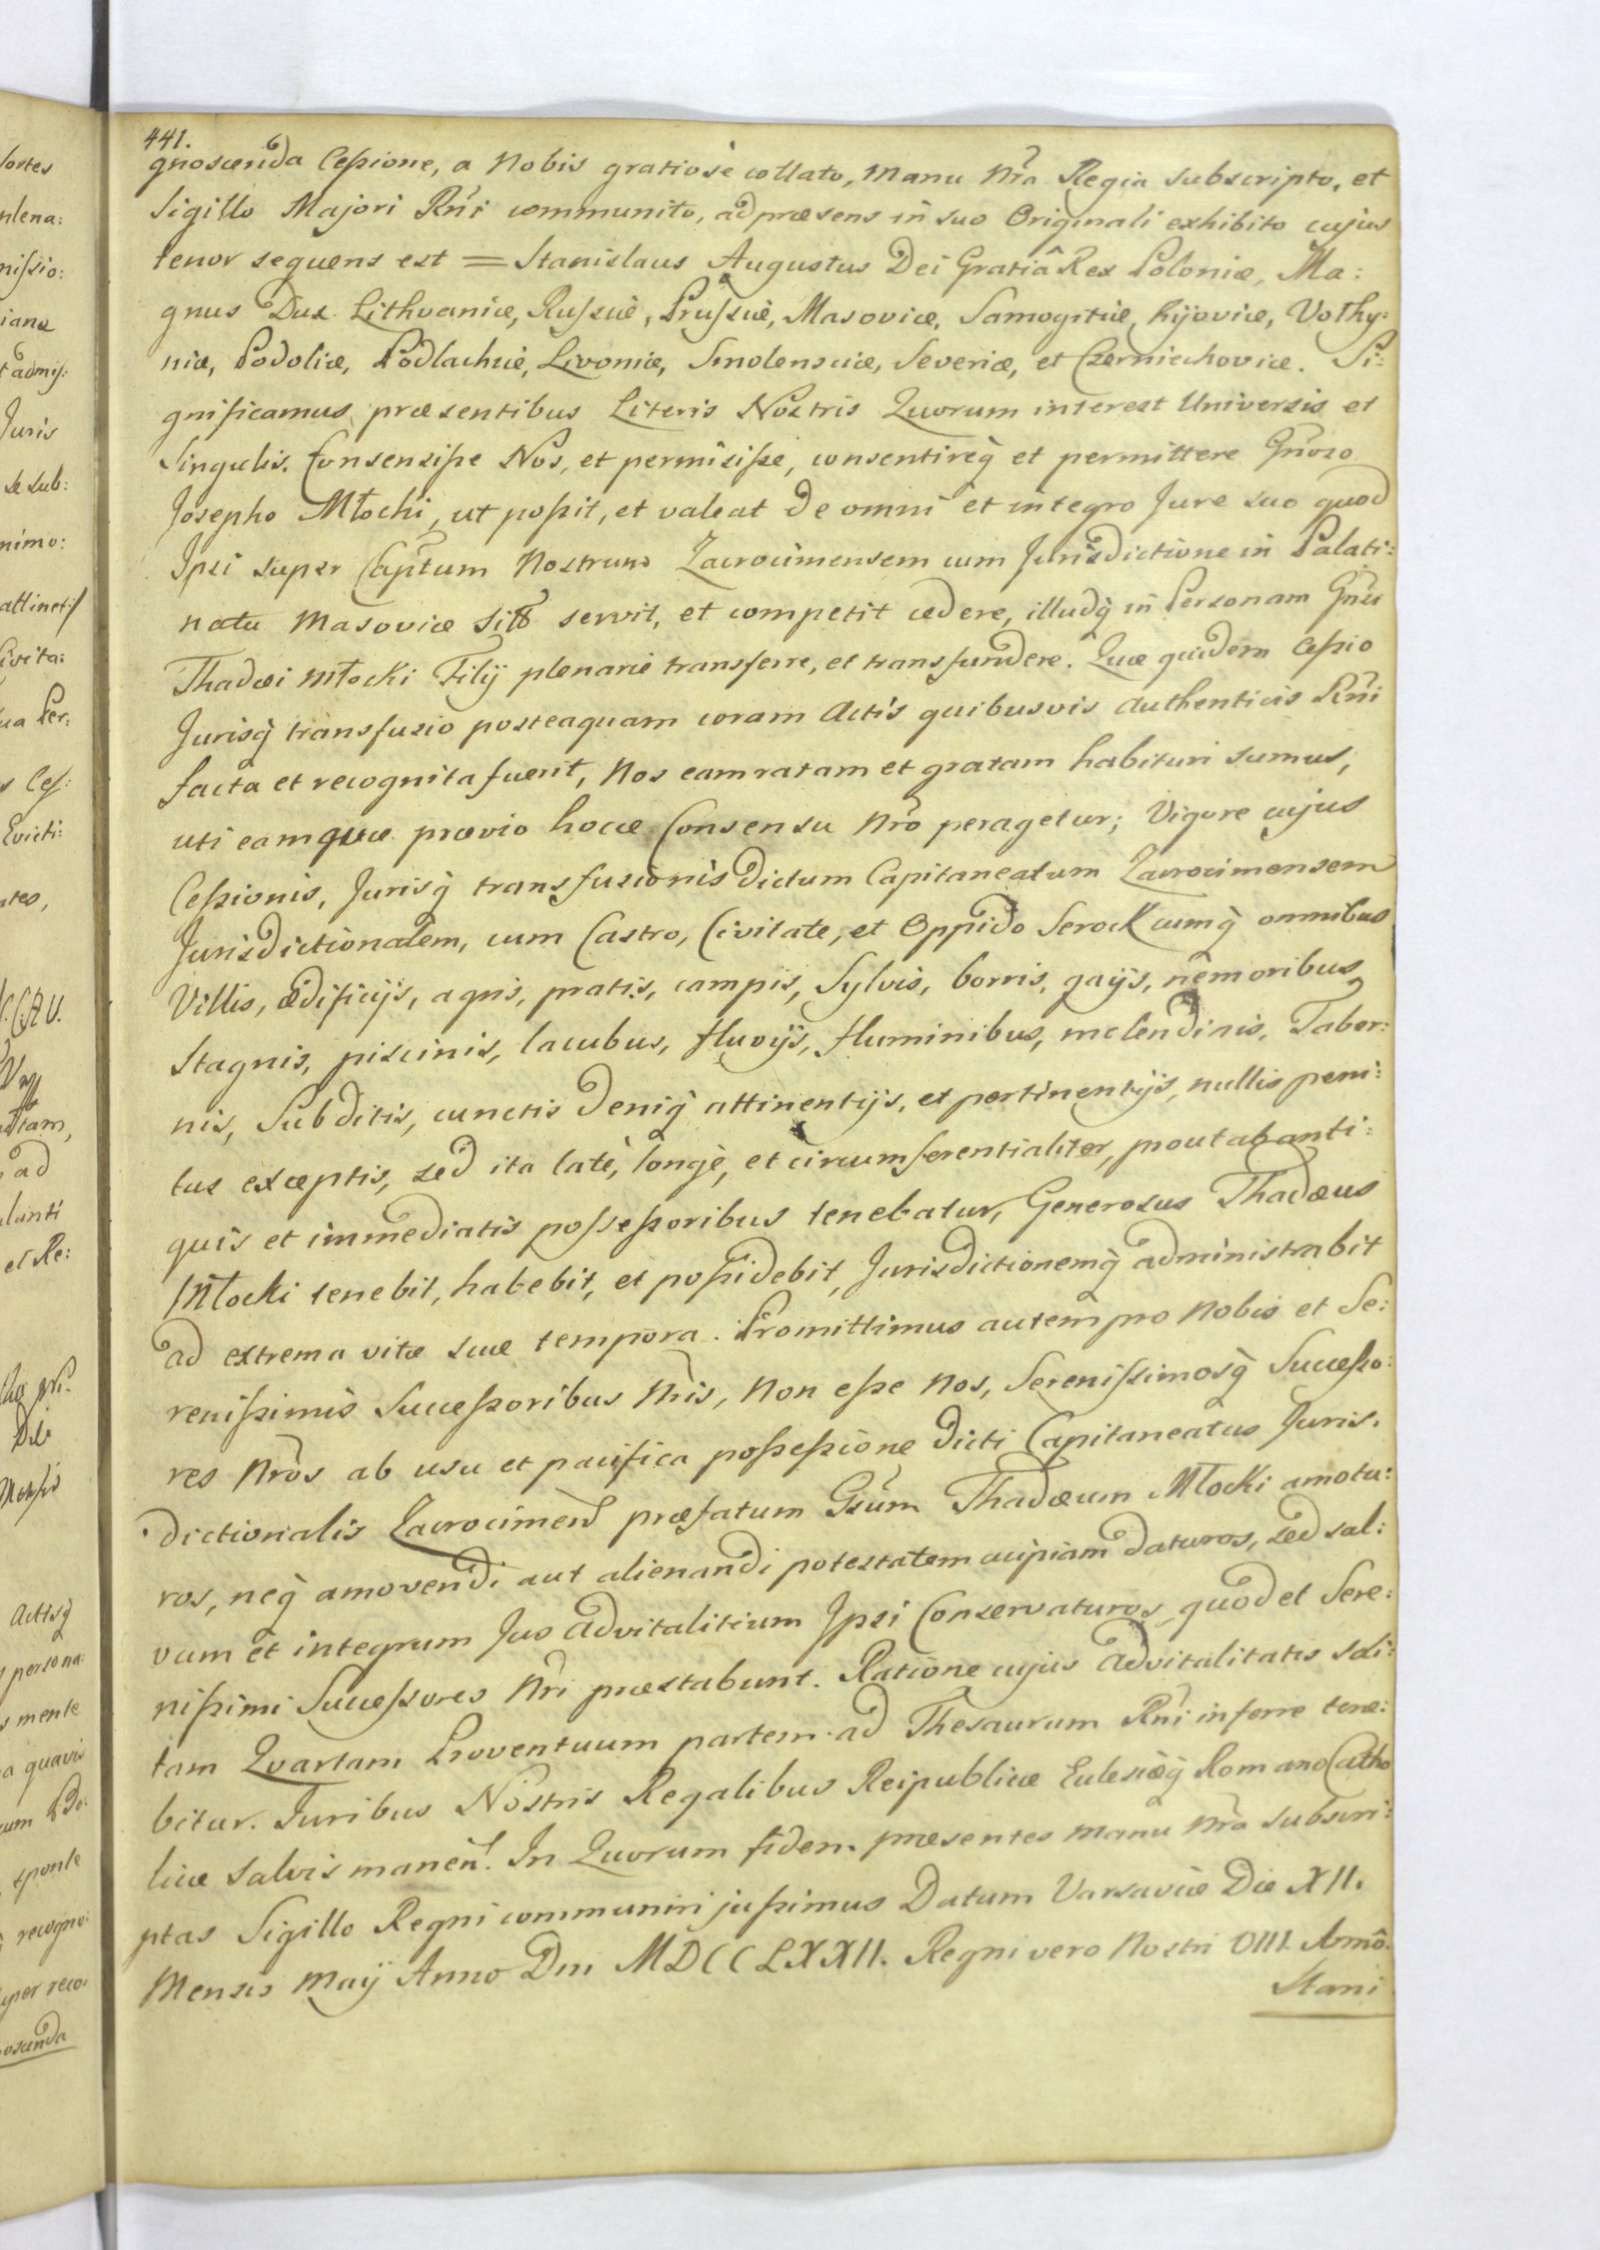 441.
gnoscenda Cessione, a Nobis gratiose collato, Manu Nra Regia subscripto, et
Sigillo Majori Rni communito, ad præsens in suo Originali exhibito cujus
tenor sequens est = Stanislaus Augustus Dei Gratiâ Rex Poloniæ, Ma:
gnus Dux Lithvaniæ, Russiæ, Prussiæ, Masoviæ, Samogitiæ, Kijoviæ, Volhy:
niæ, Podoliæ, Podlachiæ, Livoniæ, Smolensciæ, Severiæ, et Czerniechoviæ. Si:
gnificamus præsentibus Literis Nostris Quorum interest Universis et
Singulis. Consensisse Nos, et permisisse, consentireq et permittere Gnoso
Josepho Młocki, ut possit, et valeat de omni et integro Jure suo quod
Ipsi super Captum Nostrum Zacrocimensem cum Jurisdictione in Palati:
natu Masoviæ sitt servit, et competit cedere, illudq in Personam Gnsi
Thadæi Młocki Filij plenarie transferre, et transfundere. Quæ quidem Cessio
Jurisq transfusio posteaquam coram Actis quibusvis authenticis Rni
facta et recognita fuerit, Nos eam ratam et gratam habituri sumus,
uti eamquæ prævio hocce Consensu Nro peragetur; Vigore cujus
Cessionis, Jurisq transfusionis dictum Capitaneatum Zacrocimensem
Jurisdictionalem, cum Castro, Civitate, et Oppido Serock cumq omnibus
Villis, ædificijs, agris, pratis, campis, Sylvis, borris, gajjs, nemoribus
Stagnis, piscinis, lacubus, fluvijs, fluminibus, molendinis, Taber:
nis, Subditis, cunctis deniq attinentijs, et pertinentijs, nullis peni:
tus exceptis, sed ita latè, longè, et circumferentialiter, prout ab anti:
quis et immediatis possessoribus tenebatur, Generosus Thadæus
Młocki tenebit, habebit, et possidebit, Jurisdictionemq administrabit
ad extrema vitæ suæ tempora. Promittimus autem pro Nobis et Se:
renissimis Successoribus Nris, Non esse Nos, Serenissimosq Successo:
res Nros ab usu et pacifica possessione dicti Capitaneatus Juris.
dictionalis Zacrocimens præfatum Gsum Thadæum Młocki amotu:
ros, neq amovendi aut alienandi potestatem cuipiam daturos, sed sal:
vum et integrum Jus advitalitium Ipsi Conservaturos, quod et Sere:
nissimi Successores Nri præstabunt. Ratione cujus advitalitatis soli:
tam Quartam Proventuum partem ad Thesaurum Rni inferre tene:
bitur. Juribus Nostris Regalibus Reipublicæ Eclesiæq Romano Catho
licæ salvis manen. In Quorum fidem præsentes manu Nra subscri:
ptas Sigillo Regni communiri jussimus Datum Varsaviæ Die XII.
Mensis Maij Anno Dni MDCCLXXII. Regni vero Nostri VIII Anno.
Stani